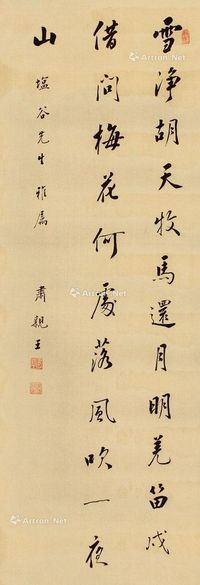 雪净胡天牧馬還月明羌笛戍
借問梅花何處落風吹一夜
山
塩谷先生雅属
肅親王
Artron.Net
Artron.Net
Artron.Net
Artron.Net